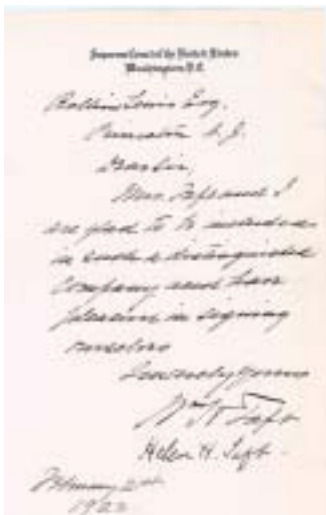 Supreme Court of the United States
Washington, D.C.
Rollin Lewis Esq.
Princeton N.J.
Dear Sir,
Mrs. Taft and I
are glad to be included
in such a distinguished
Company and have
pleasure in signing
ourselves
Sincerely yours
Wm H Taft
Helen H. Taft.
February 2nd
1922